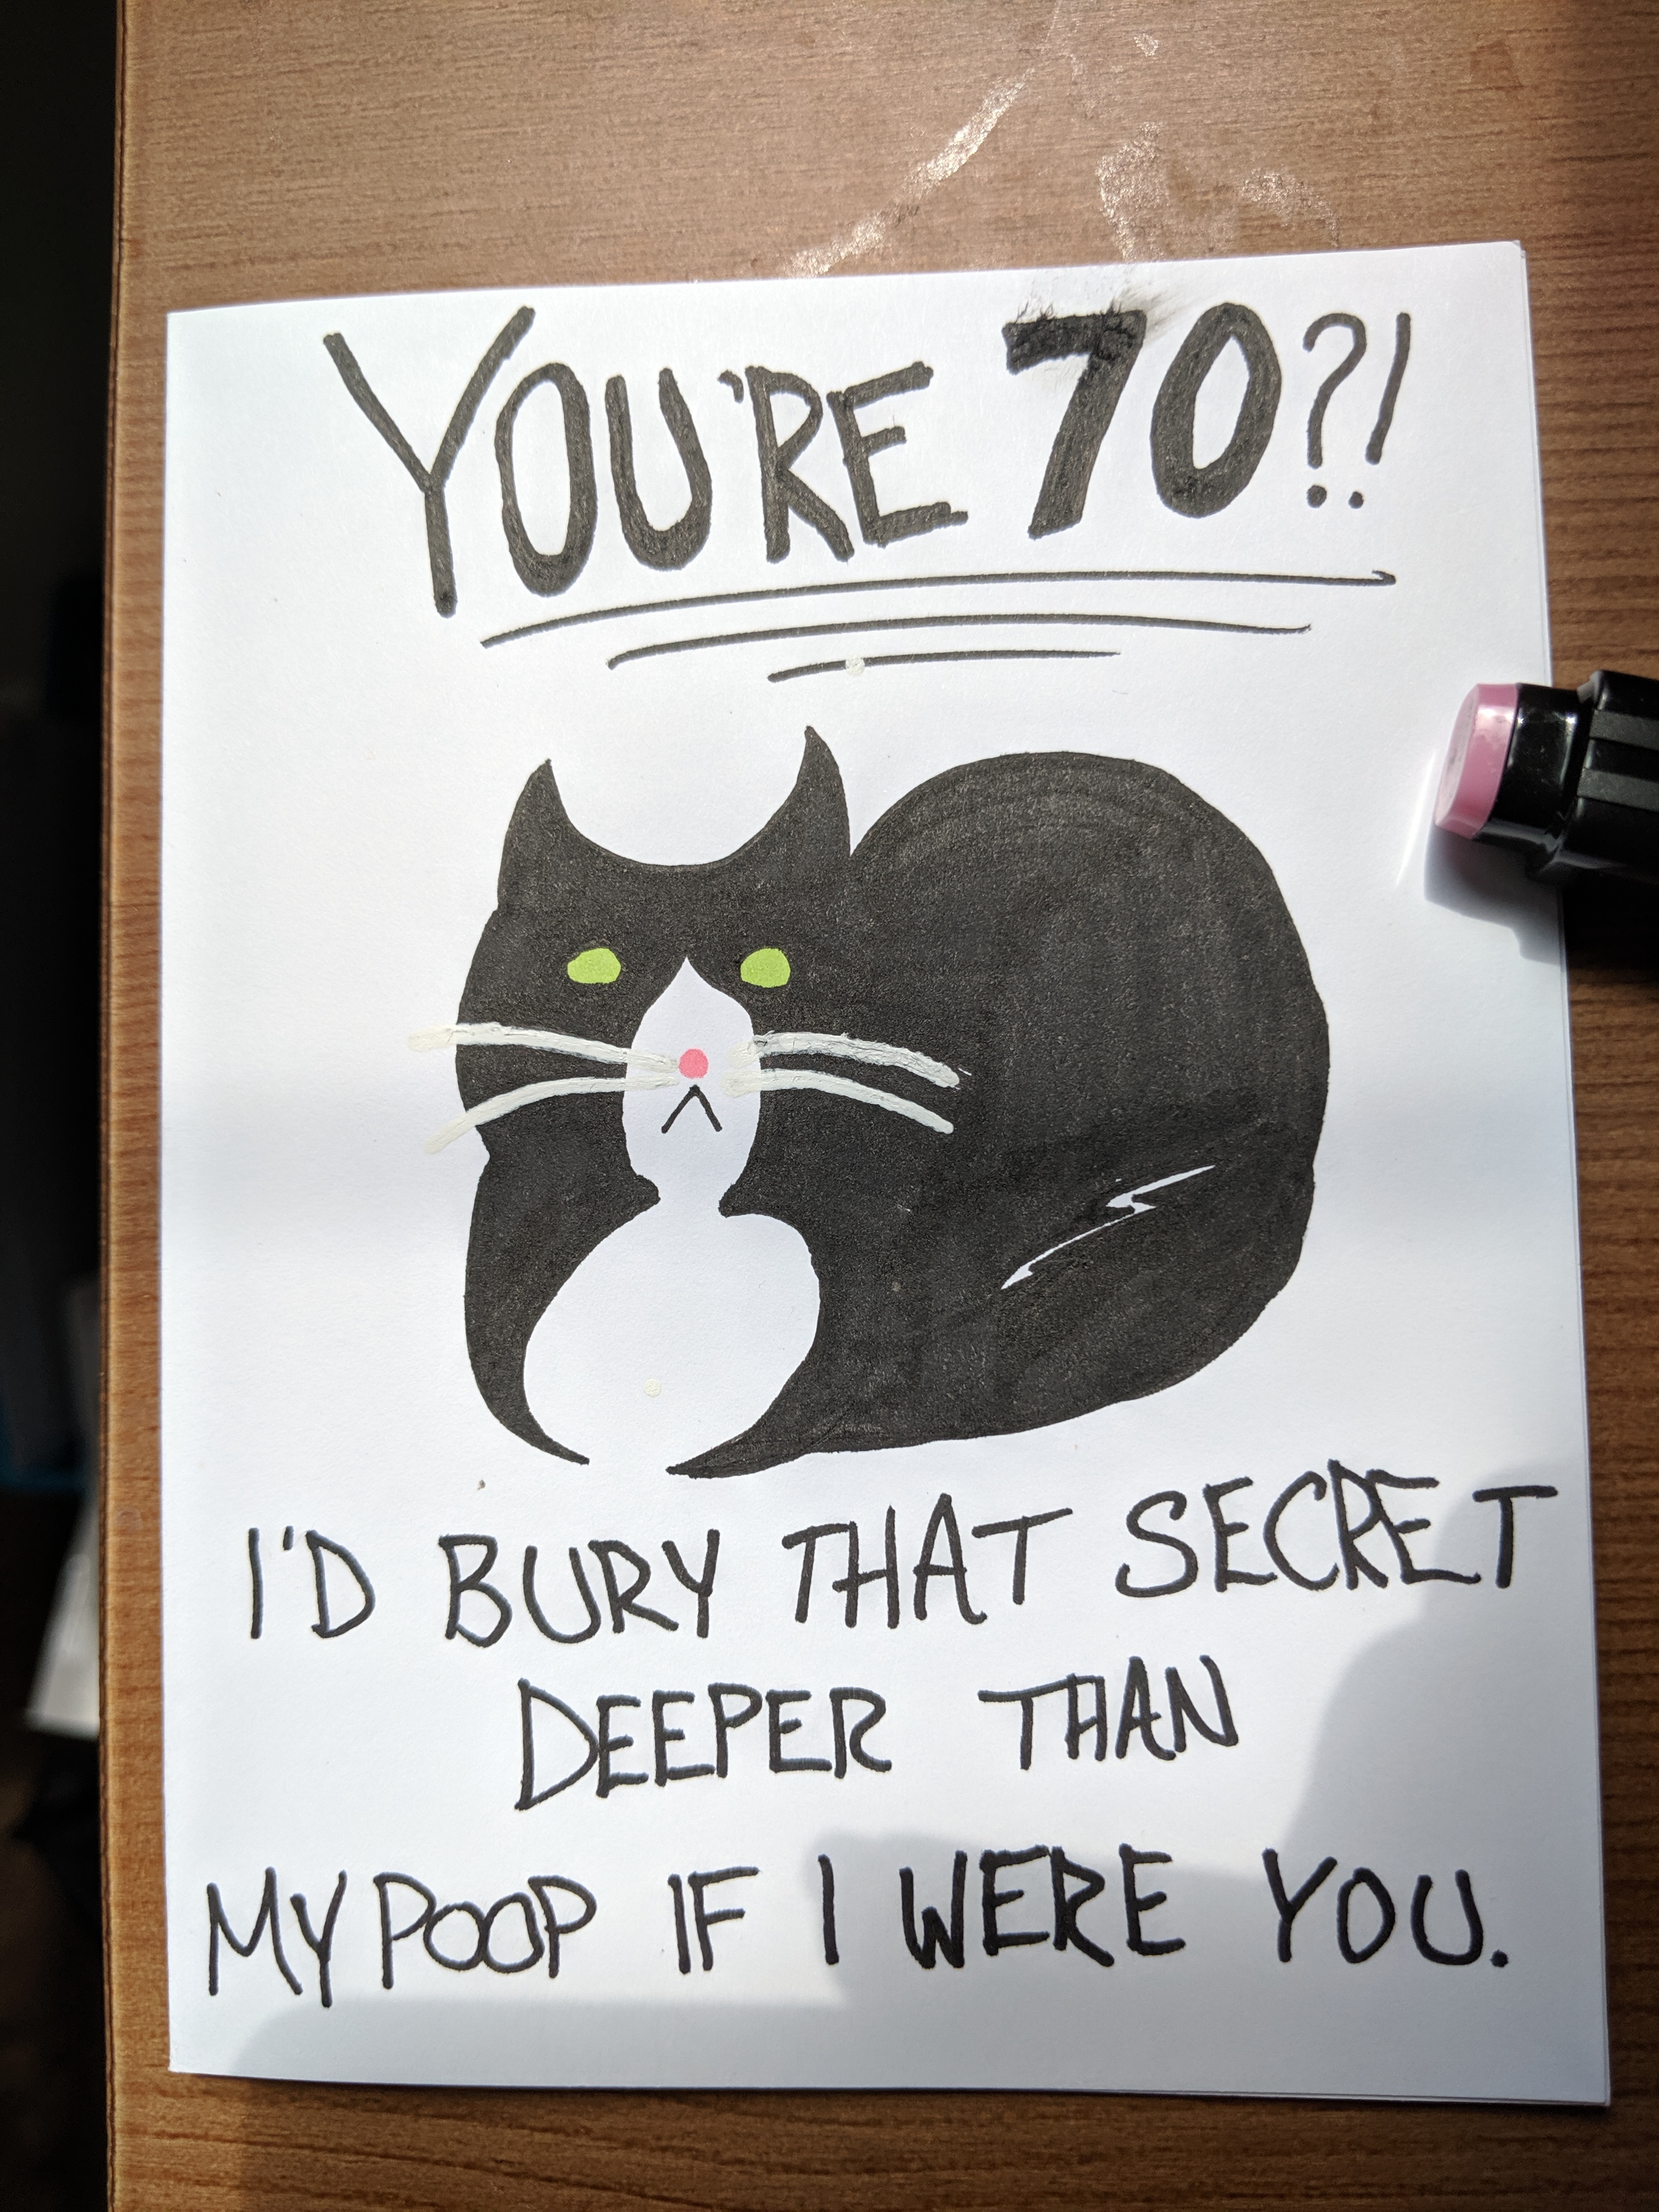 YOU'RE 70?!
I'D BURY THAT SECRET
DEEPER THAN
MY POOP IF I WERE YOU.